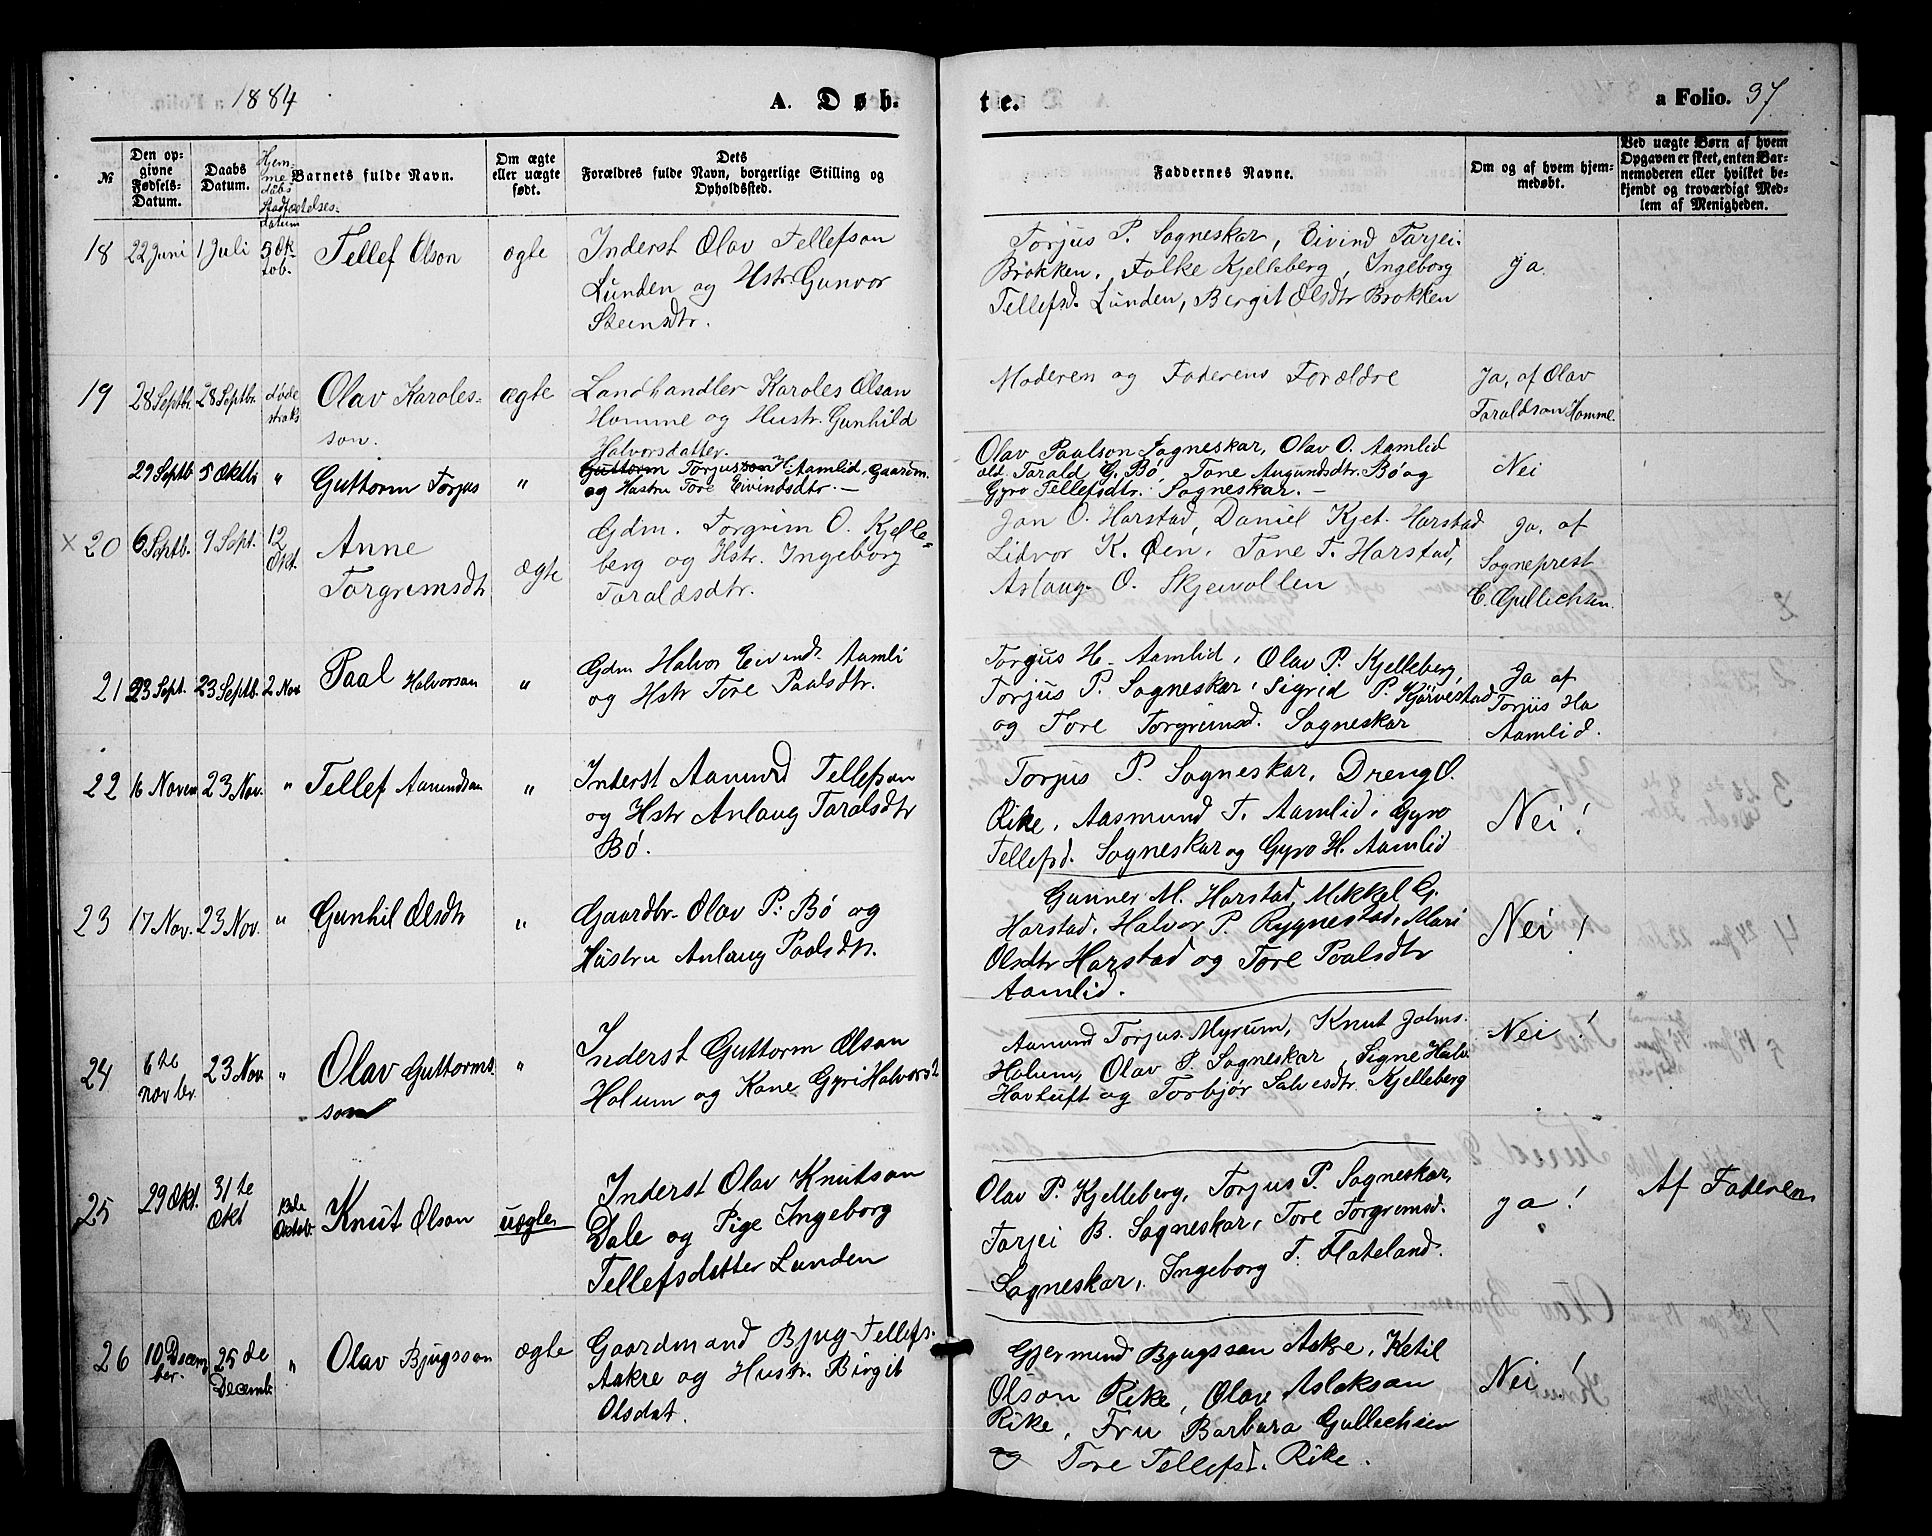 1884
A. Døb-
te.
a Folio. 37
№
Den op-
givne
Fødsels-
Datum.
Daabs
Datum.
Hjem-
me
dåbs
Stadfæstelses-
datum
Barnets fulde Navn.
Om ægte
eller uægte
født.
Dets
Forældres fulde Navn, borgerlige Stilling og
Opholdssted.
Faddernes Navne.
Om og af hvem hjem-
medøbt.
Ved uægte Børn af hvem
Opgaven er skeet, enten Bar-
nemoderen eller hvilket be-
kjendt og troværdigt Med-
lem af Menigheden.
18 22 Juni 1 Juli 5 Ok-
tob. Tellef Olson ægte
Inderst Olav Tellefson
Lunden og Hstr. Gunvor
Steinsdtr.
Torjus P. Sagneskar, Eivind Tarjei.
Brokken, Folke Kjelleberg, Ingeborg
Tellefsd. Lunden, Bergit Olsdtr Brokken
Ja.
19 28 Septbr 28 Septbr. døde
straks Olav Karoles-
son. ægte
Landhandler Karoles Olson
Homme og Hustr. Gunhild
Halvorsdatter.
Moderen og Faderens Forældre
Ja, af Olav
Taraldson Homme.
29 Septb 5 Oktb " Guttorm Torjus "
Guttorm Torjusson H. Aamlid, Gaardm.
og Hustru Tore Eivindsdtr. —
Olav Paalson Sagneskar, Olav O. Aamlid
old, Tarald G. Bø, Tone Augundsdtr. Bø og
Gyro Tellefsdtr. Sagneskar. —
Nei
x 20 6 Septb. 9 Sept. 12
Okt. Anne
Torgrimsdtr ægte
Gdm. Torgrim O. Kjelle-
berg og Hstr. Ingeborg
Taraldsdtr.
Jon O. Harstad, Daniel Kjet. Harstad
Lidvor K. Øen, Tone T. Harstad,
Aslaug O. Skjevollen
Ja, af
Sogneprest
C. Gullichsen.
21 23 Sept. 23 Septb. 2 Nov Paal Halvorson "
Gdm Halvor Eivindr. Aamli
og Hstr Tore Paalsdtr.
Torgus H. Aamlid, Olav P. Kjelleberg,
Torjus P. Sagneskar, Sigrid P. Kjørvestad
og Tore Torgrimsd. Sagneskar
Ja af
Torjus Ha
Aamlid.
22 16 Novem 23 Nov. " Tellef Aamundson "
Inderst Aamund Tellefson
og Hstr Anlaug Taralsdtr
Bø.
Torjus P. Sagneskar, Dreng O.
Rike, Aasmund T. Aamlid, Gyro
Tellefsd. Sagneskar og Gyro H. Aamlid
Nei!
23 17 Nov. 23 Nov. " Gunhil Olsdtr "
Gaardbr. Olav P. Bø og
Hustru Anlaug Paalsdtr.
Gunner M. Harstad, Mikkel G.
Harstad, Halvor P. Rygnestad, Mari
Olsdtr Harstad og Tore Paalsdtr
Aamlid.
Nei!
24 6te
novbr. 23 Nov. " Olav Guttorms-
son "
Inderst Guttorm Olson
Holum og Kone Gyri Halvorsd
Aamund Torjus. Myrum, Knut Johns.
Holum, Olav P. Sagneskar, Signe Halv.
Havtuft og Torbjør Salvesdtr. Kjelleberg
Nei!
25 29 Okt. 31te
Okt Knut Olson uægte
Inderst Olav Knutson
Dale og Pige Ingeborg
Tellefsdatter Lunden
Olav P. Kjelleberg, Torjus P. Sagneskar,
Tarjei B. Sagneskar, Tore Torgrimsd.
Sagneskar, Ingeborg T. Flateland.
ja!
Af Faderen
26 10 Decem
ber. 25de
Decemb. " Olav Bjugsson ægte
Gaardmand Bjug Tellefs.
Aakre og Hustr. Birgit
Olsdat.
Gjermund Bjugsson Aakre, Ketil
Olson Rike, Olav Aslakson
Rike, Fru Barbara Gullichsen
og Tore Tellefsd. Rike.
Nei!